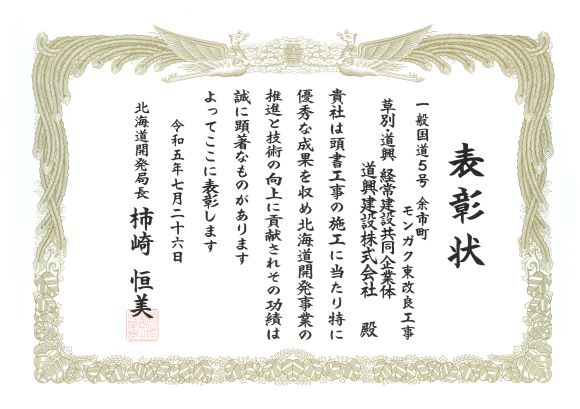 表彰状
一般国道5号 余市町
モンガク東改良工事
草別・道興 経常建設共同企業体
道興建設株式会社 殿
貴社は頭書工事の施工に当たり特に
優秀な成果を収め北海道開発事業の
推進と技術の向上に貢献されその功績は
誠に顕著なものがあります
よってここに表彰します
令和五年七月二十六日
北海道開発局長 柿崎 恒美